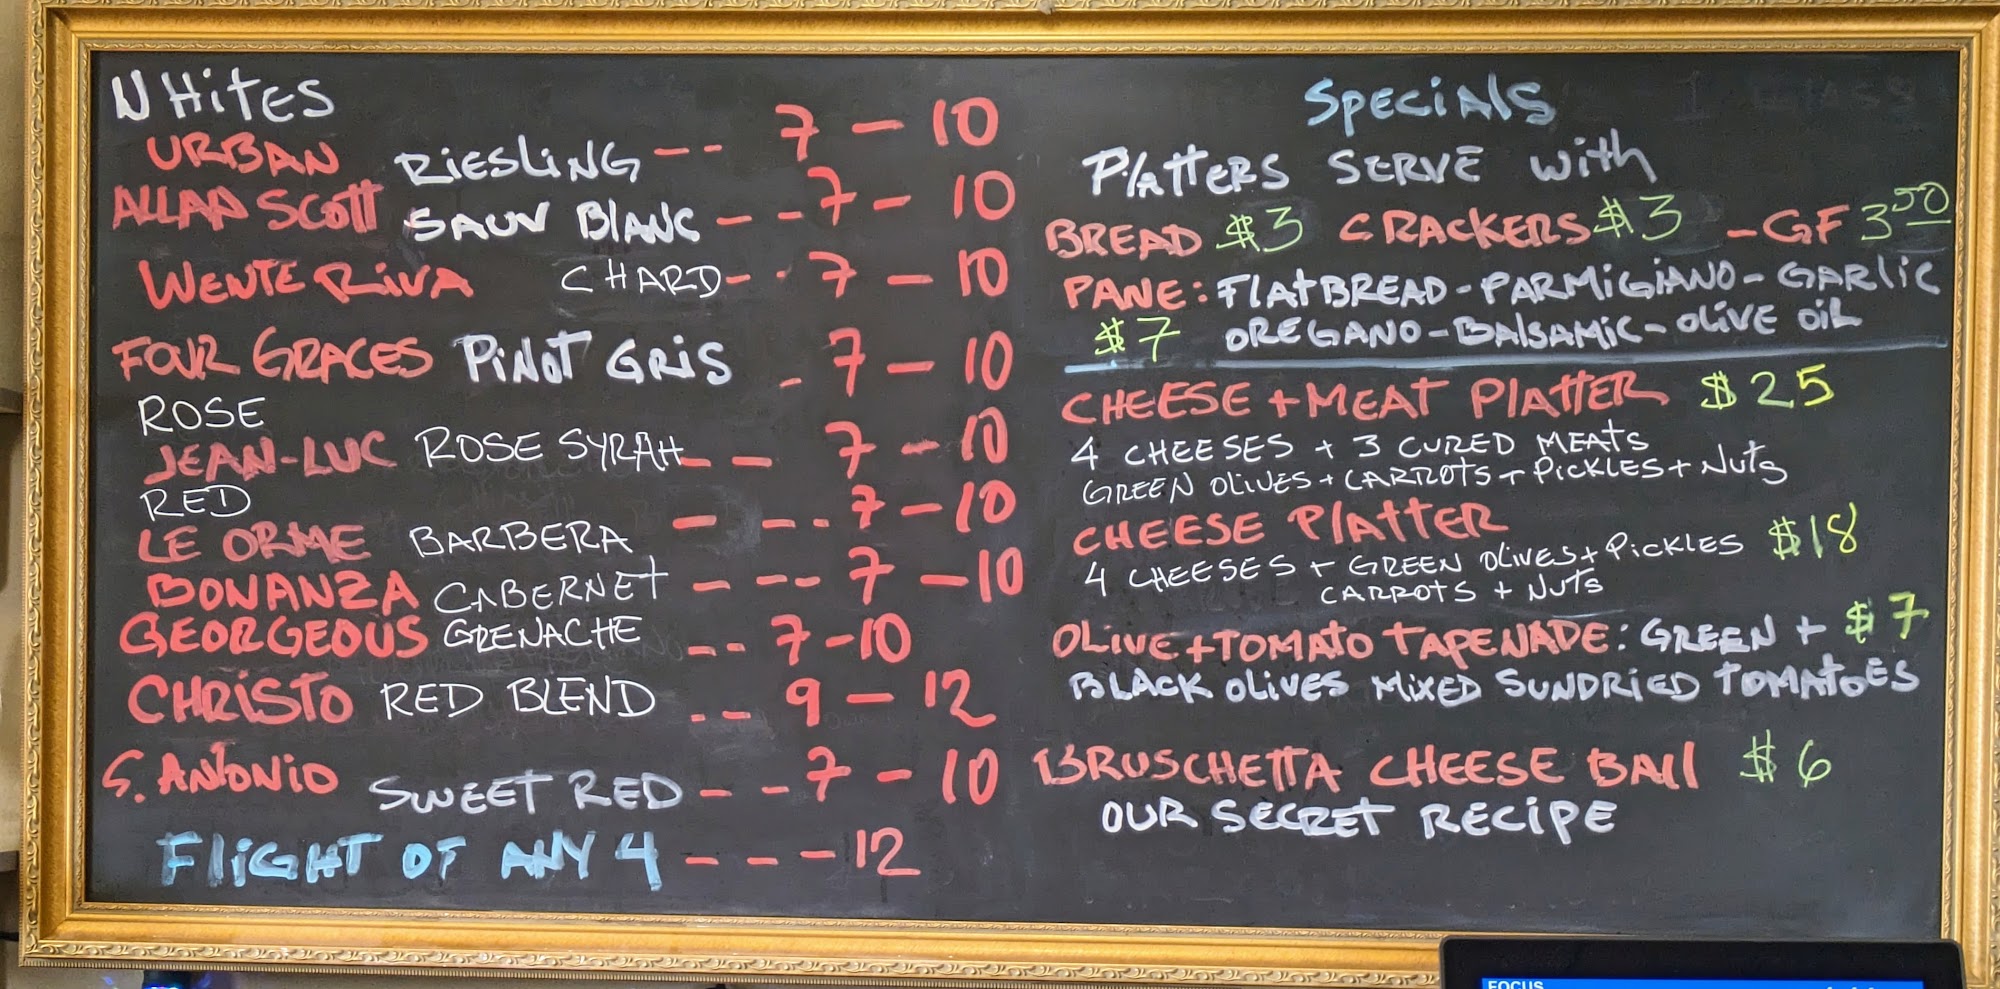 WHITES
URBAN RIESLING -- 7 - 10
ALLAN SCOTT SAUV BLANC -- 7 - 10
WENTE RIVA CHARD -- 7 - 10
FOUR GRACES PINOT GRIS - 7 - 10
ROSE
JEAN-LUC ROSE SYRAH -- 7 - 10
RED
LE ORME BARBERA --- 7 - 10
BONANZA CABERNET --- 7 - 10
GEORGEOUS GRENACHE -- 7 - 10
CHRISTO RED BLEND -- 9 - 12
S. ANTONIO SWEET RED -- 7 - 10
FLIGHT OF ANY 4 --- 12
SPECIALS
PLATTERS SERVE WITH
BREAD $3 CRACKERS $3 - GF 3.50
PANE: FLATBREAD - PARMIGIANO - GARLIC
$7 OREGANO - BALSAMIC - OLIVE OIL
CHEESE + MEAT PLATTER $25
4 CHEESES + 3 CURED MEATS
GREEN OLIVES + CARROTS + PICKLES + NUTS
CHEESE PLATTER $18
4 CHEESES + GREEN OLIVES + PICKLES
CARROTS + NUTS
OLIVE + TOMATO TAPENADE: GREEN + $7
BLACK OLIVES MIXED SUNDRIED TOMATOES
BRUSCHETTA CHEESE BALL $6
OUR SECRET RECIPE
FOCUS